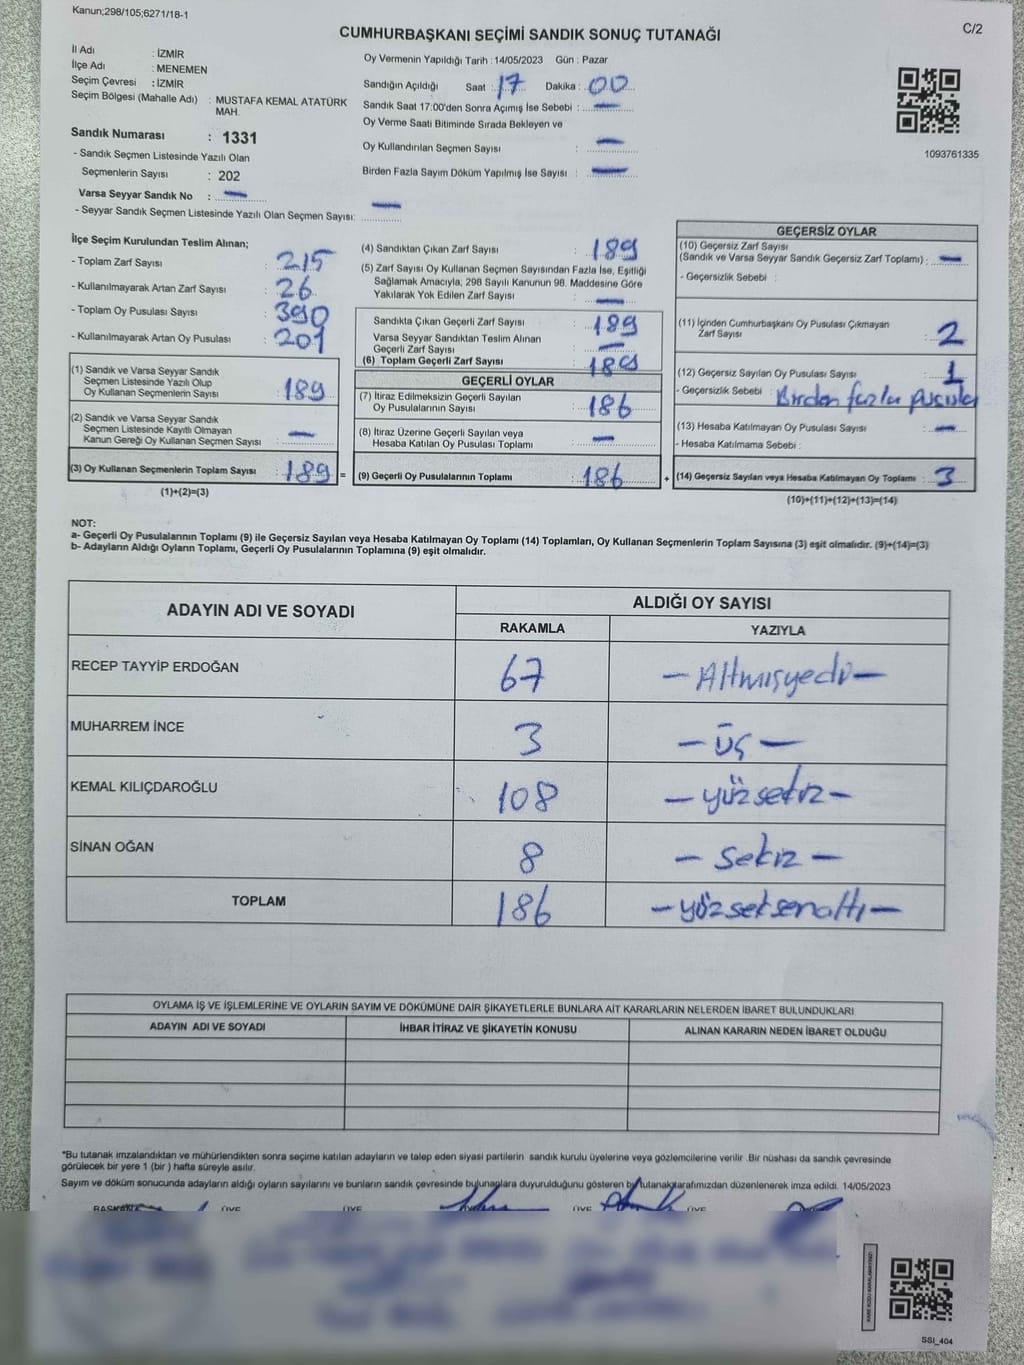 Kanun;298/105;6271/18-1
C/2
CUMHURBAŞKANI SEÇİMİ SANDIK SONUÇ TUTANAĞI
İl Adı : İZMİR
İlçe Adı : MENEMEN
Seçim Çevresi : İZMİR
Seçim Bölgesi (Mahalle Adı) : MUSTAFA KEMAL ATATÜRK MAH.
Sandık Numarası : 1331
- Sandık Seçmen Listesinde Yazılı Olan
Seçmenlerin Sayısı : 202
Varsa Seyyar Sandık No : —
- Seyyar Sandık Seçmen Listesinde Yazılı Olan Seçmen Sayısı: —
Oy Vermenin Yapıldığı Tarih : 14/05/2023 Gün : Pazar
Sandığın Açıldığı Saat : 17 Dakika : 00
Sandık Saat 17:00'den Sonra Açımış İse Sebebi : —
Oy Verme Saati Bitiminde Sırada Bekleyen ve
Oy Kullandırılan Seçmen Sayısı : —
Birden Fazla Sayım Döküm Yapılmış İse Sayısı : —
1093761335
İlçe Seçim Kurulundan Teslim Alınan;
- Toplam Zarf Sayısı : 215
- Kullanılmayarak Artan Zarf Sayısı : 26
- Toplam Oy Pusulası Sayısı : 390
- Kullanılmayarak Artan Oy Pusulası : 201
(1) Sandık ve Varsa Seyyar Sandık
Seçmen Listesinde Yazılı Olup
Oy Kullanan Seçmenlerin Sayısı : 189
(2) Sandık ve Varsa Seyyar Sandık
Seçmen Listesinde Kayıtlı Olmayan
Kanun Gereği Oy Kullanan Seçmen Sayısı : —
(3) Oy Kullanan Seçmenlerin Toplam Sayısı : 189 =
(1)+(2)=(3)
(4) Sandıktan Çıkan Zarf Sayısı : 189
(5) Zarf Sayısı Oy Kullanan Seçmen Sayısından Fazla İse, Eşitliği
Sağlamak Amacıyla; 298 Sayılı Kanunun 98. Maddesine Göre
Yakılarak Yok Edilen Zarf Sayısı : —
Sandıkta Çıkan Geçerli Zarf Sayısı : 189
Varsa Seyyar Sandıktan Teslim Alınan
Geçerli Zarf Sayısı : —
(6) Toplam Geçerli Zarf Sayısı : 189
GEÇERLİ OYLAR
(7) İtiraz Edilmeksizin Geçerli Sayılan
Oy Pusulalarının Sayısı : 186
(8) İtiraz Üzerine Geçerli Sayılan veya
Hesaba Katılan Oy Pusulası Toplamı : —
(9) Geçerli Oy Pusulalarının Toplamı : 186 +
GEÇERSİZ OYLAR
(10) Geçersiz Zarf Sayısı
(Sandık ve Varsa Seyyar Sandık Geçersiz Zarf Toplamı) : —
- Geçersizlik Sebebi :
(11) İçinden Cumhurbaşkanı Oy Pusulası Çıkmayan
Zarf Sayısı : 2
(12) Geçersiz Sayılan Oy Pusulası Sayısı : 1
- Geçersizlik Sebebi Birden fazla pusula
(13) Hesaba Katılmayan Oy Pusulası Sayısı : —
- Hesaba Katılmama Sebebi :
(14) Geçersiz Sayılan veya Hesaba Katılmayan Oy Toplamı : 3
(10)+(11)+(12)+(13)=(14)
NOT:
a- Geçerli Oy Pusulalarının Toplamı (9) ile Geçersiz Sayılan veya Hesaba Katılmayan Oy Toplamı (14) Toplamları, Oy Kullanan Seçmenlerin Toplam Sayısına (3) eşit olmalıdır. (9)+(14)=(3)
b- Adayların Aldığı Oyların Toplamı, Geçerli Oy Pusulalarının Toplamına (9) eşit olmalıdır.
ADAYIN ADI VE SOYADI ALDIĞI OY SAYISI
RAKAMLA YAZIYLA
RECEP TAYYİP ERDOĞAN 67 — Altmışyedi —
MUHARREM İNCE 3 — Üç —
KEMAL KILIÇDAROĞLU 108 — yüzsekiz —
SİNAN OĞAN 8 — Sekiz —
TOPLAM 186 — yüzseksenaltı —
OYLAMA İŞ VE İŞLEMLERİNE VE OYLARIN SAYIM VE DÖKÜMÜNE DAİR ŞİKAYETLERLE BUNLARA AİT KARARLARIN NELERDEN İBARET BULUNDUKLARI
ADAYIN ADI VE SOYADI İHBAR İTİRAZ VE ŞİKAYETİN KONUSU ALINAN KARARIN NEDEN İBARET OLDUĞU
*Bu tutanak imzalandıktan ve mühürlendikten sonra seçime katılan adayların ve talep eden siyasi partilerin sandık kurulu üyelerine veya gözlemcilerine verilir .Bir nüshası da sandık çevresinde
görülecek bir yere 1 (bir ) hafta süreyle asılır.
Sayım ve döküm sonucunda adayların aldığı oyların sayılarını ve bunların sandık çevresinde bulunanlara duyurulduğunu gösteren bu tutanak tarafımızdan düzenlenerek imza edildi. 14/05/2023
BAŞKAN ÜYE ÜYE ÜYE ÜYE
SSI_404